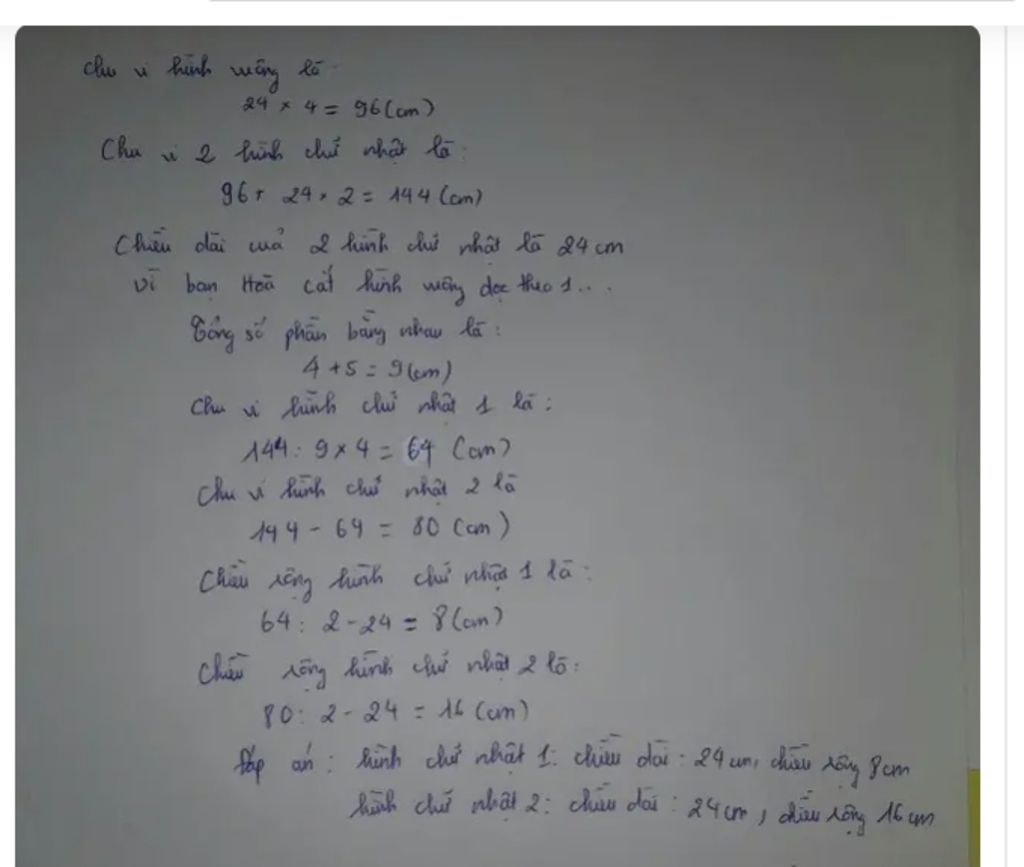 Chu vi hình vuông là:
24 × 4 = 96 (cm)
Chu vi 2 hình chữ nhật là:
96 + 24 × 2 = 144 (cm)
Chiều dài của 2 hình chữ nhật là 24 cm
vì bạn Hoà cắt hình vuông dọc theo 1...
Tổng số phần bằng nhau là:
4 + 5 = 9 (cm)
Chu vi hình chữ nhật 1 là:
144 : 9 × 4 = 64 (cm)
Chu vi hình chữ nhật 2 là
144 - 64 = 80 (cm)
Chiều rộng hình chữ nhật 1 là:
64 : 2 - 24 = 8 (cm)
Chiều rộng hình chữ nhật 2 là:
80 : 2 - 24 = 16 (cm)
Đáp án: hình chữ nhật 1: chiều dài: 24 cm, chiều rộng 8 cm
hình chữ nhật 2: chiều dài: 24 cm, chiều rộng 16 cm